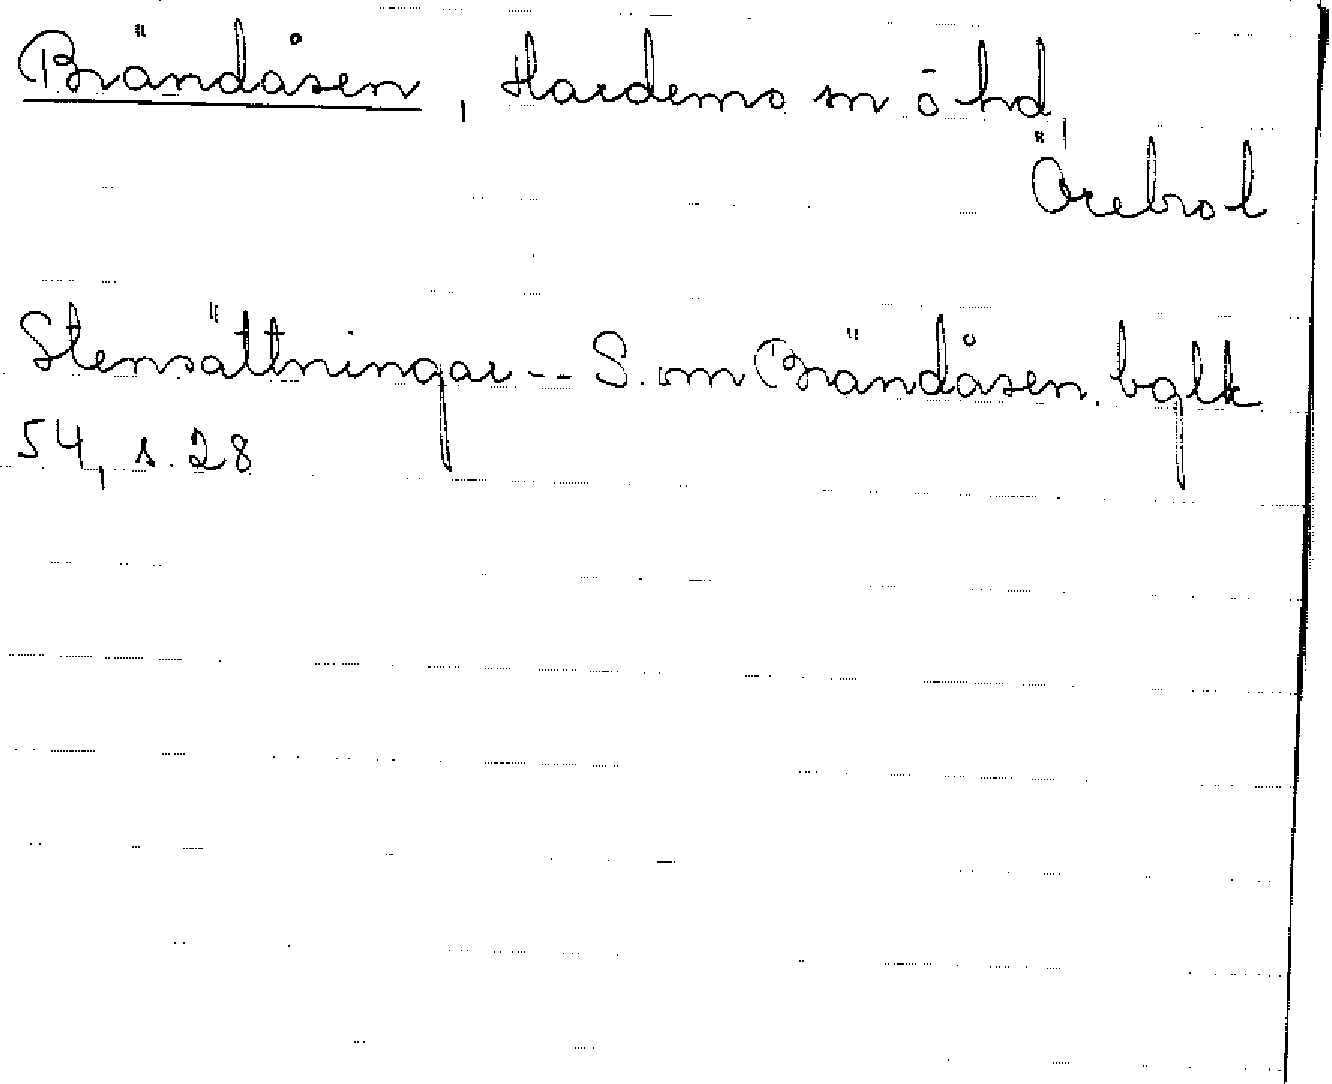 Brändåsen, Hardemo sn ö hd,
Örebro l
Stensättningar -- S. om Brändåsen. bglk
54, s. 28